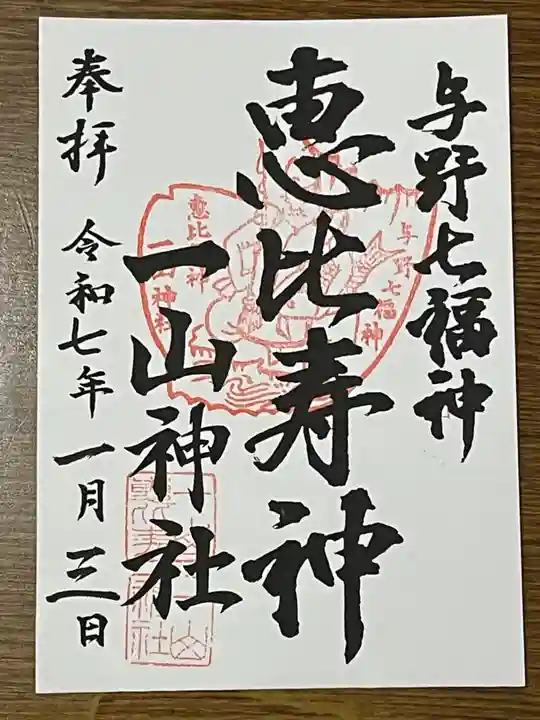 与野七福神
恵比寿神
一山神社
奉拝 令和七年 一月 三日
与野七福神
恵比寿神
一山神社